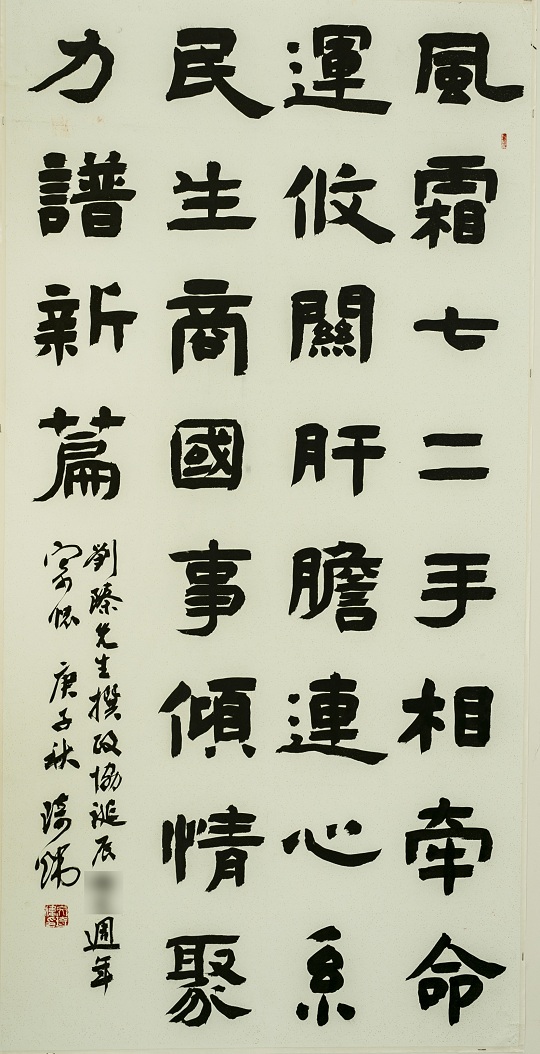 風霜七二手相牽命
運攸關肝膽連心系
民生商國事傾情聚
力譜新篇
劉臻先生撰政協誕辰週年
寄懷 庚子秋